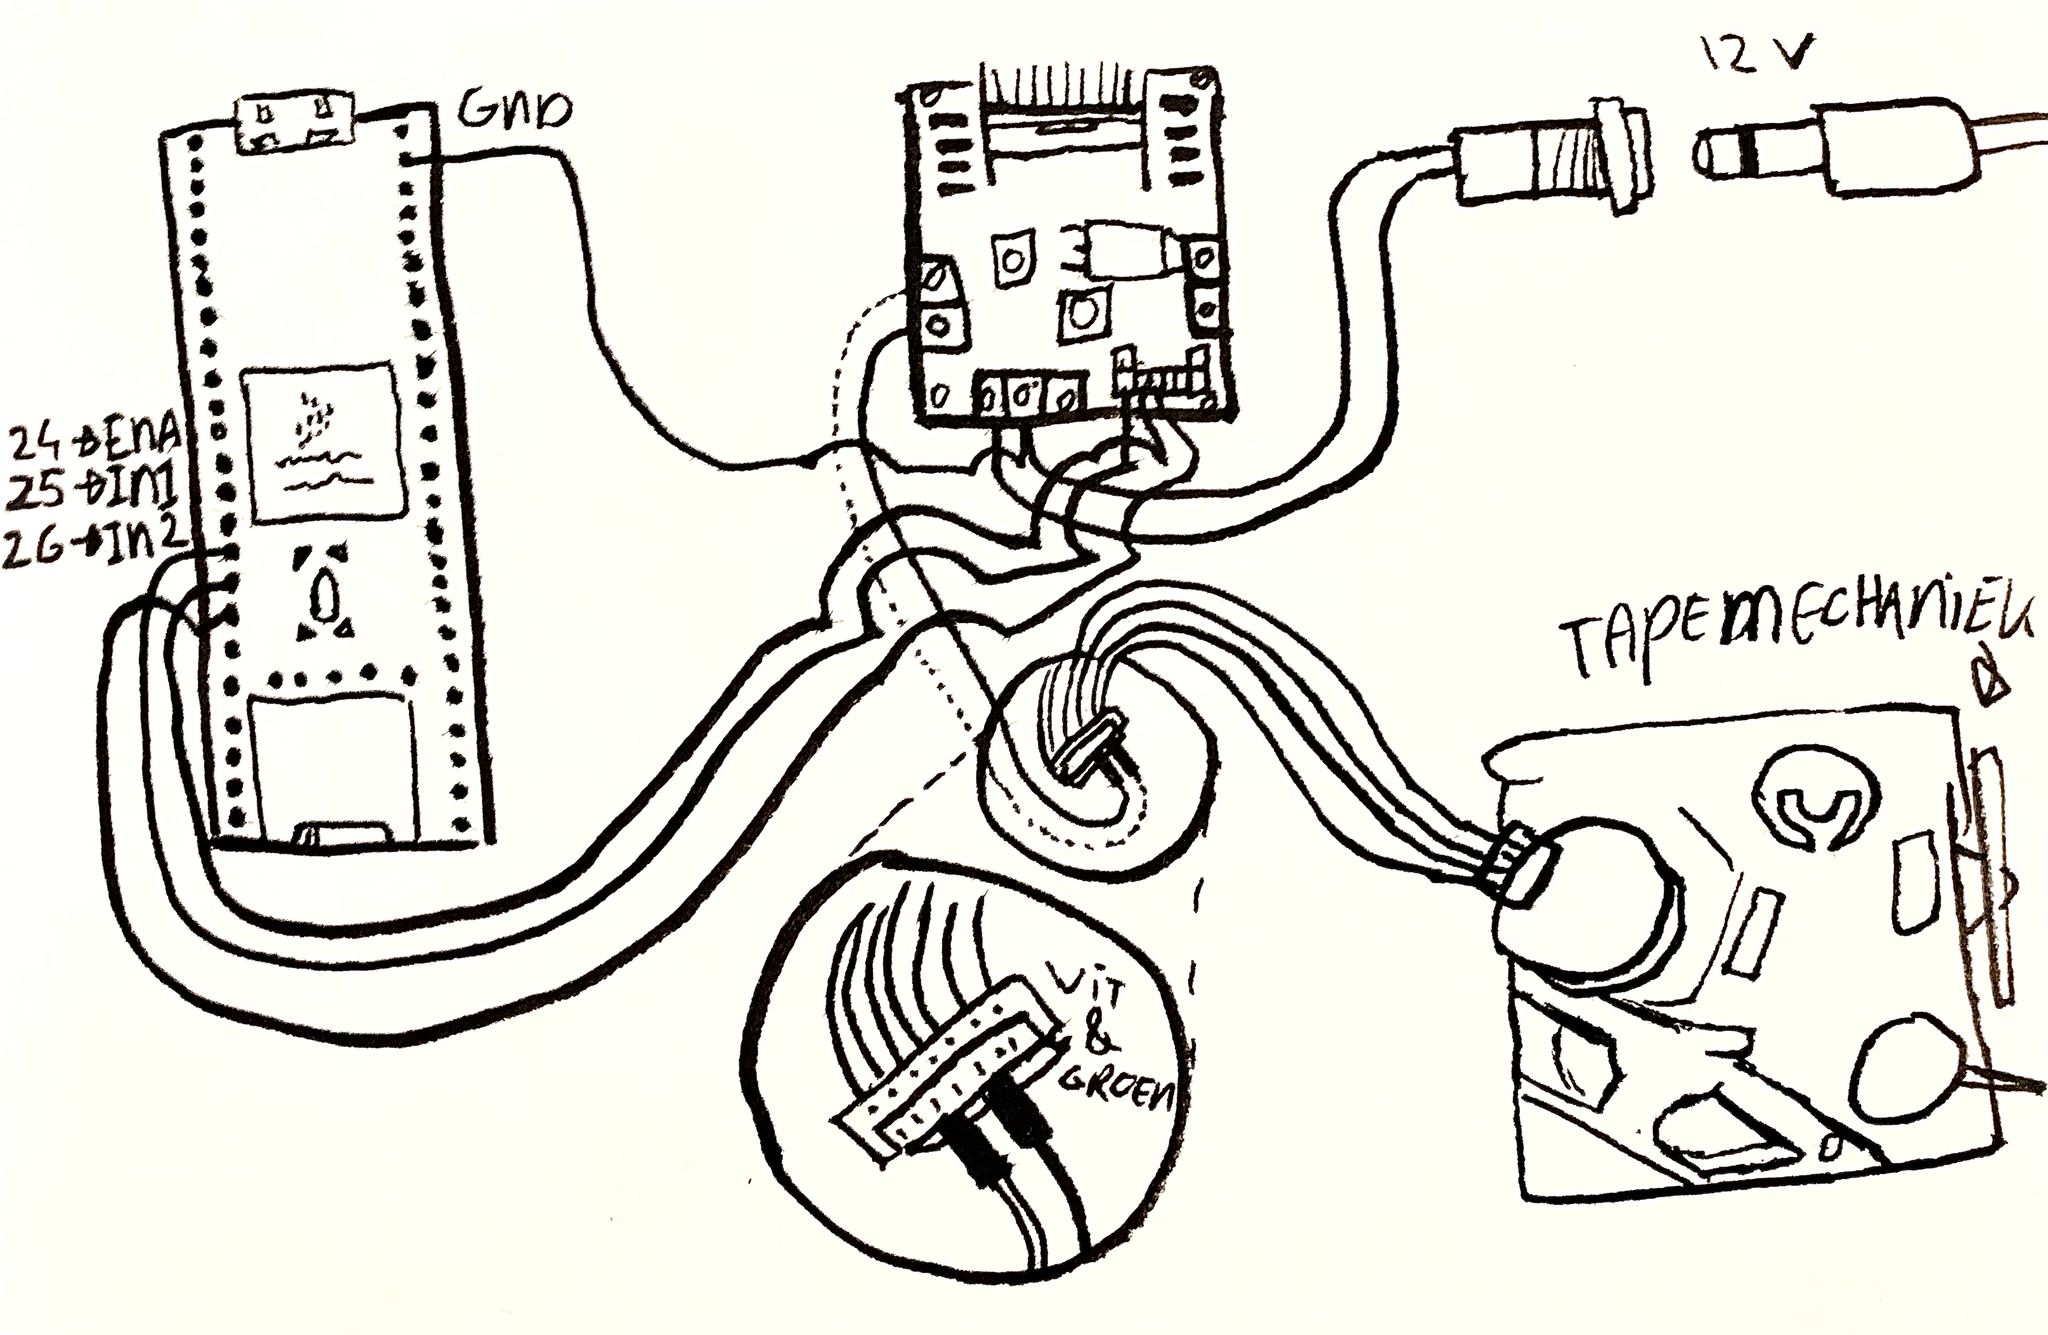 GND
12 V
24→ENA
25→IN1
26→IN2
TAPEMECHANIEK
WIT
&
GROEN